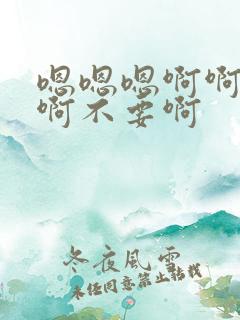 嗯嗯嗯啊啊
啊不要啊
冬夜风雪
未经同意禁止转载